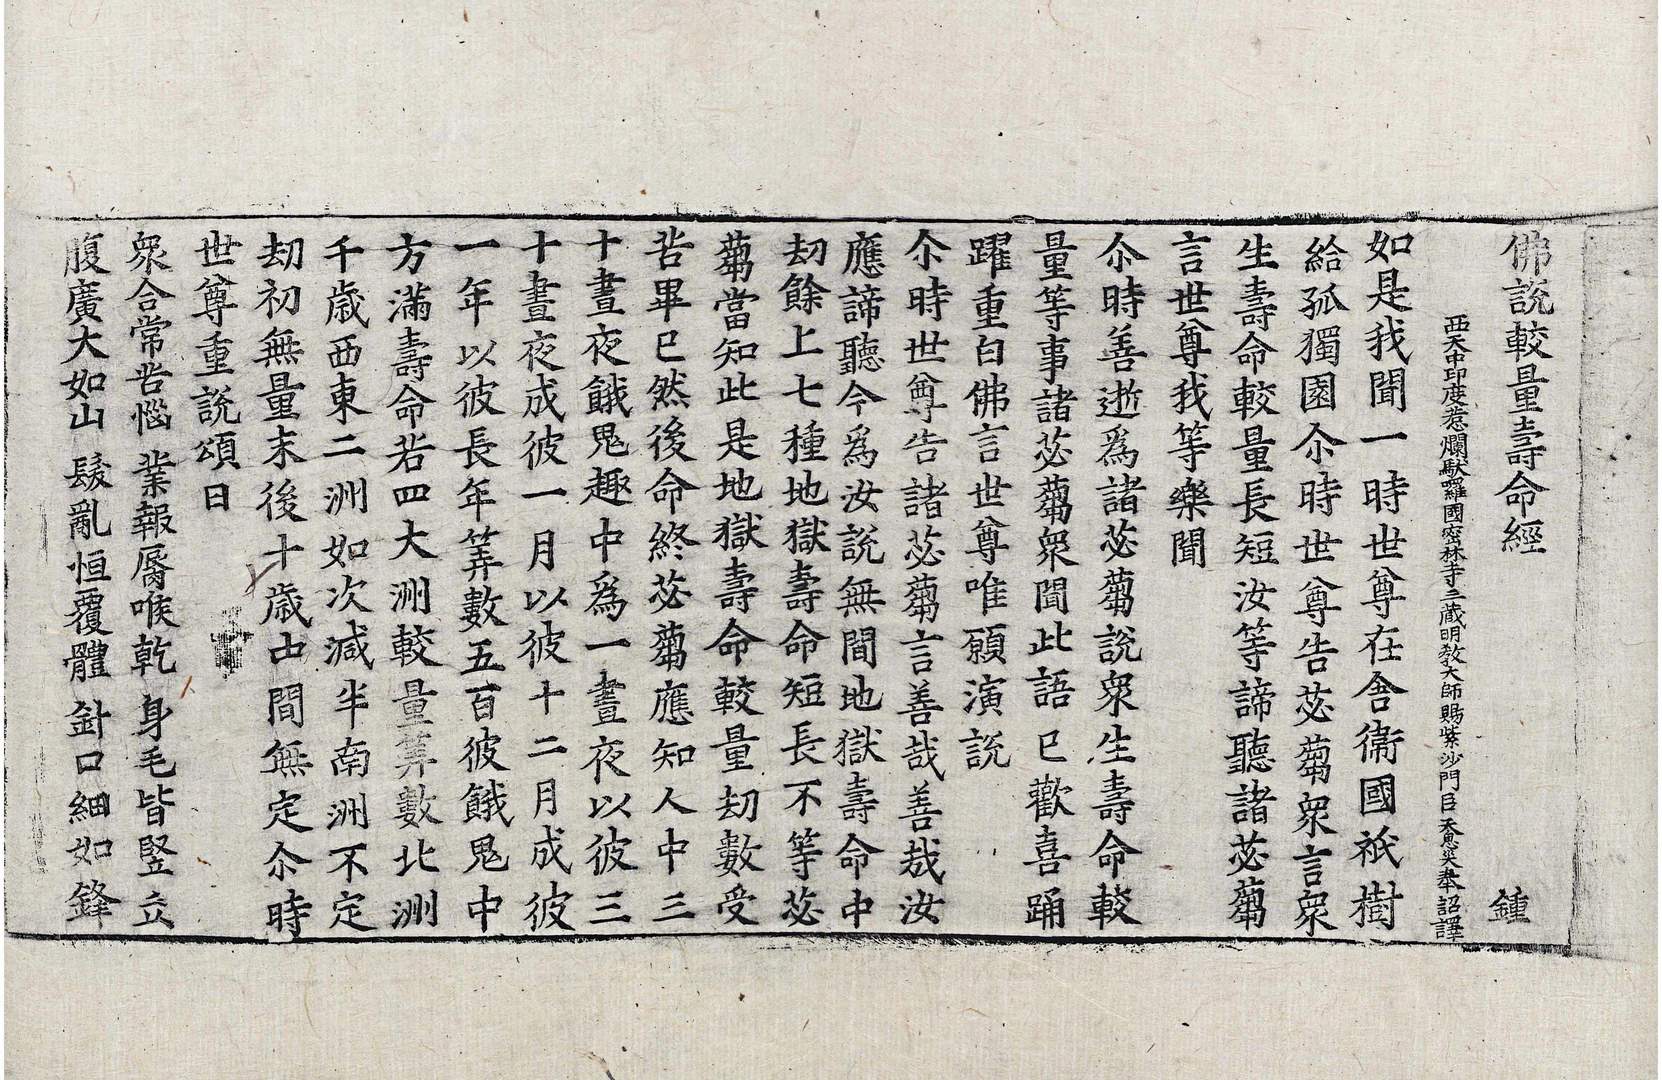 佛說較量壽命經　鍾
西天中印度惹爛馱羅國密林寺三藏明教大師賜紫沙門臣天息災奉　詔譯
如是我聞一時世尊在舍衞國祇樹
給孤獨園尒時世尊告苾蒭衆言衆
生壽命較量長短汝等諦聽諸苾蒭
言世尊我等樂聞
尒時善逝爲諸苾蒭說衆生壽命較
量等事諸苾蒭衆聞此語已歡喜踊
躍重白佛言世尊唯願演說
尒時世尊告諸苾蒭言善哉善哉汝
應諦聽今爲汝說無間地獄壽命中
劫餘上七種地獄壽命短長不等苾
蒭當知此是地獄壽命較量劫數受
苦畢已然後命終苾蒭應知人中三
十晝夜餓鬼趣中爲一晝夜以彼三
十晝夜成彼一月以彼十二月成彼
一年以彼長年筭數五百彼餓鬼中
方滿壽命若四大洲較量筭數北洲
千歲西東二洲如次減半南洲不定
劫初無量末後十歲中間無定尒時
世尊重說頌曰
衆合常苦惱　業報脣喉乾　身毛皆竪立
腹廣大如山　髮亂恒覆體　針口細如鋒